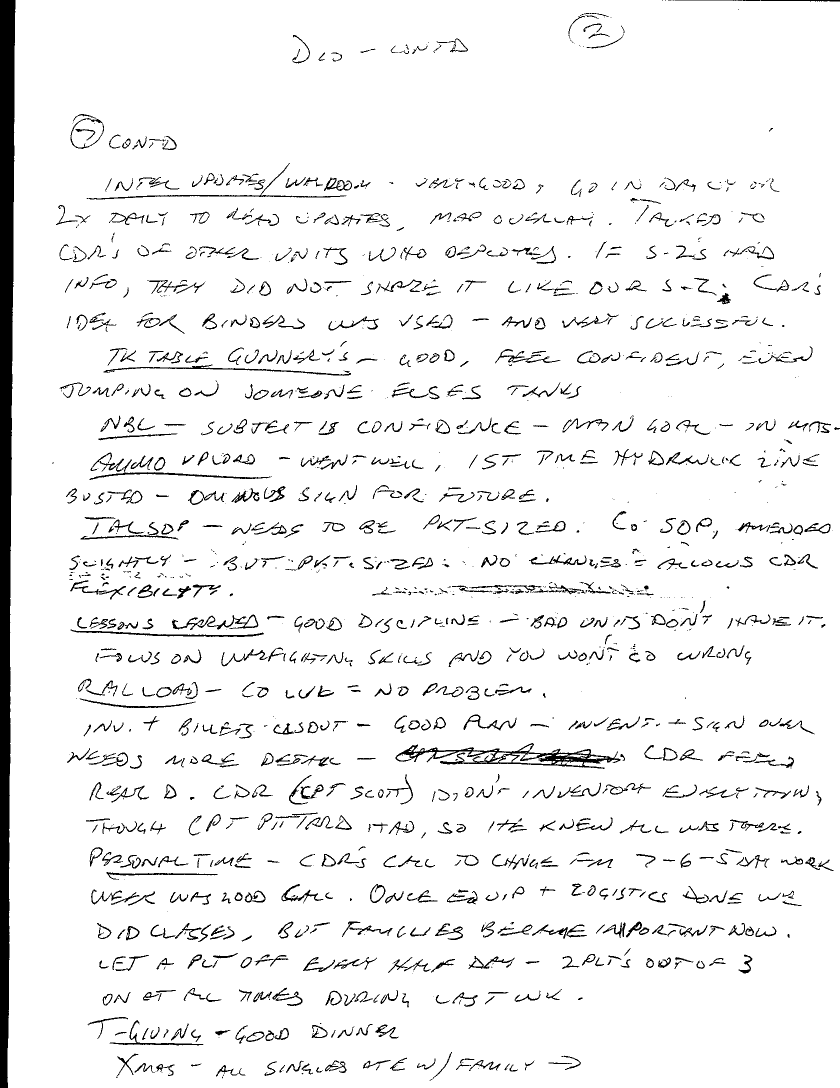 2
D20 - CONTD
7 CONTD
INTEL UPDATES/WARROOM - VERY GOOD, GO IN DAILY OR
2X DAILY TO READ UPDATES, MAP OVERLAY. TALKED TO
CDR'S OF OTHER UNITS WHO DEPLOYED. IF S-2'S HAD
INFO, THEY DID NOT SHARE IT LIKE OUR S-2. CDR'S
IDEA FOR BINDERS WAS USED - AND VERY SUCCESSFUL.
TK TABLE GUNNERY'S - GOOD, FEEL CONFIDENT, EVEN
JUMPING ON SOMEONE ELSES TANKS
NBC - SUBJECT IS CONFIDENCE - MAIN GOAL - IN
AMMO UPLOAD - WENT WELL, 1ST TIME HYDRAULIC LINE
BUSTED - OMINOUS SIGN FOR FUTURE.
TACSOP - NEEDS TO BE PKT-SIZED. CO SOP, AMENDED
SLIGHTLY - BUT PKT-SIZED. NO CHANGES = ALLOWS CDR
FLEXIBILITY.
LESSONS LEARNED - GOOD DISCIPLINE - BAD UNITS DON'T HAVE IT.
FOCUS ON WARFIGHTING SKILLS AND YOU WON'T GO WRONG
RAIL LOAD - CO LVL = NO PROBLEM.
INV. + BILLETS CLSDOUT - GOOD PLAN - INVENT. + SIGN OVER
NEEDS MORE DETAIL - CDR FEELS
REAR D. CDR (CPT SCOTT) DIDN'T INVENTORY EVERYTHING,
THOUGH CPT PITTARD HAD, SO HE KNEW ALL WAS THERE.
PERSONAL TIME - CDR'S CALL TO CHANGE FM 7-6-5 DAY WORK
WEEK WAS GOOD CALL. ONCE EQUIP + LOGISTICS DONE WE
DID CLASSES, BUT FAMILIES BECAME IMPORTANT NOW.
LET A PLT OFF EVERY HALF DAY - 2 PLT'S OUT OF 3
ON AT ALL TIMES DURING LAST WK.
T-GIVING - GOOD DINNER
XMAS - ALL SINGLES ATE W/ FAMILY →